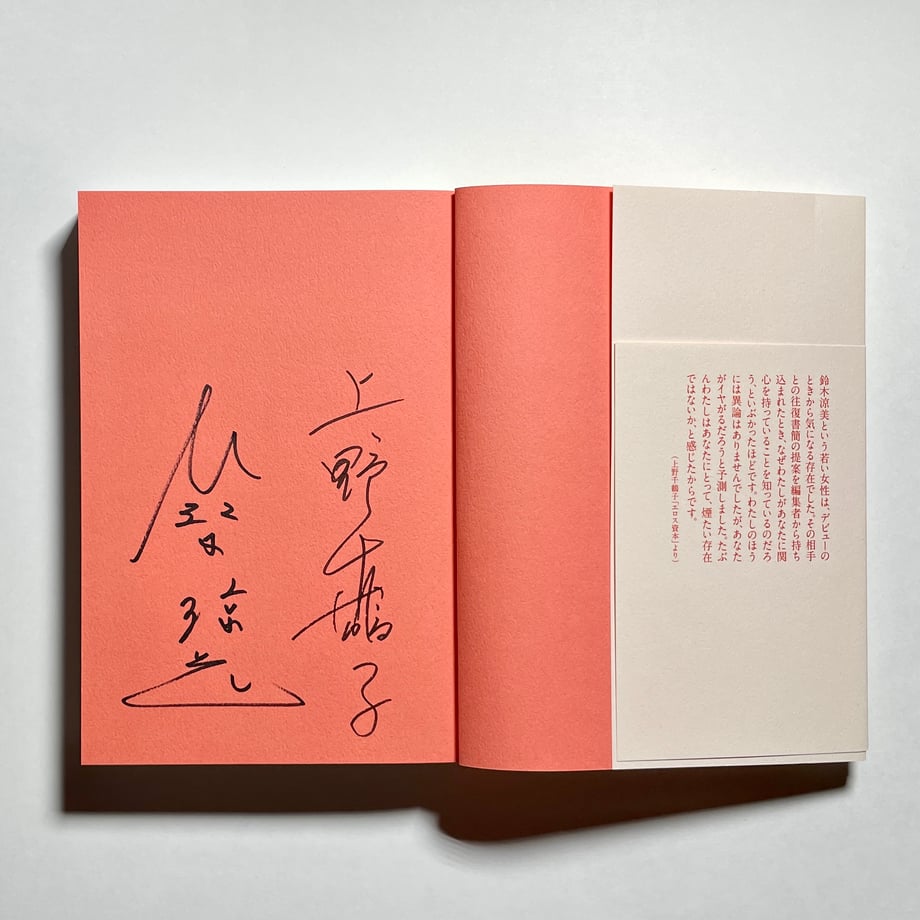 鈴木涼美という若い女性は、デビューの
ときから気になる存在でした。その相手
との往復書簡の提案を編集者から持ち
込まれたとき、なぜわたしがあなたに関
心を持っていることを知っているのだろ
う、といぶかったほどです。わたしのほう
には異論はありませんでしたが、あなた
がイヤがるだろうと予測しました。たぶ
んわたしはあなたにとって、煙たい存在
ではないか、と感じたからです。
(上野千鶴子「エロス資本」より)
上野千鶴子